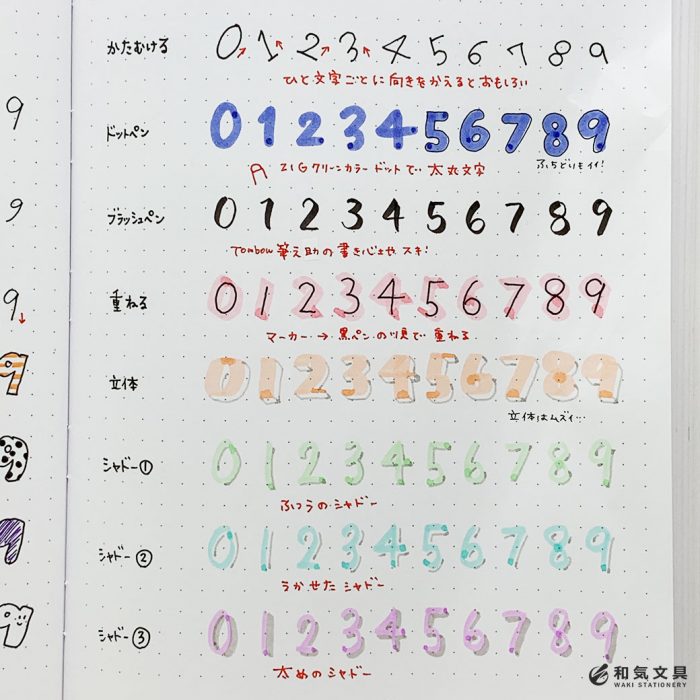 かたむける 0 1 2 3 4 5 6 7 8 9
ひと文字ごとに向きをかえるとおもしろい
9
ドットペン 0 1 2 3 4 5 6 7 8 9
ふちどりもイイ!
ZIGクリーンカラードットで太丸文字
9
ブラッシュペン 0 1 2 3 4 5 6 7 8 9
Tombow筆之助の書き心地 スキ!
9
重ねる 0 1 2 3 4 5 6 7 8 9
マーカー → 黒ペンの順で重ねる
9
立体 0 1 2 3 4 5 6 7 8 9
立体はムズイ…
9
シャドー① 0 1 2 3 4 5 6 7 8 9
ふつうのシャドー
9
シャドー② 0 1 2 3 4 5 6 7 8 9
うかせたシャドー
9
シャドー③ 0 1 2 3 4 5 6 7 8 9
太めのシャドー
和気文具
WAKI STATIONERY